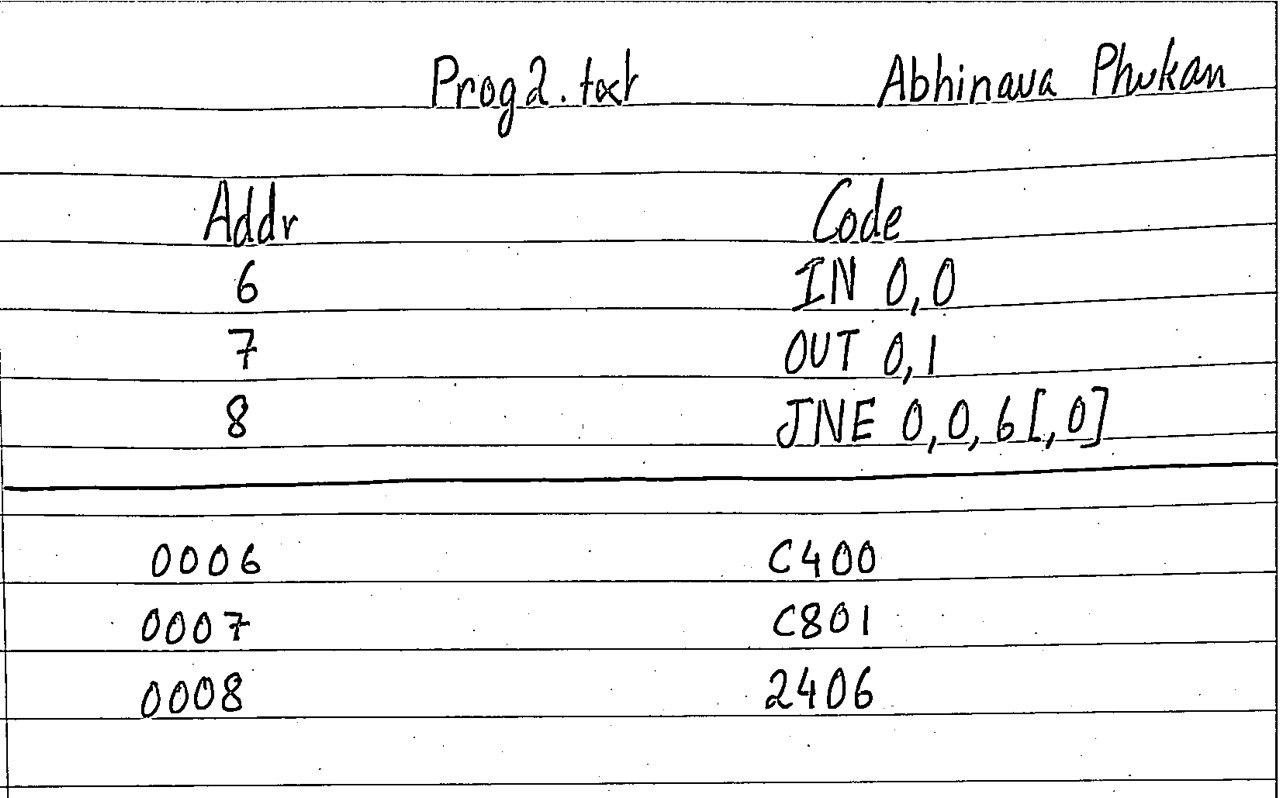 Prog2.txt Abhinava Phukan
Addr Code
6 IN 0,0
7 OUT 0,1
8 JNE 0,0,6[,0]
0006 C400
0007 C801
0008 2406